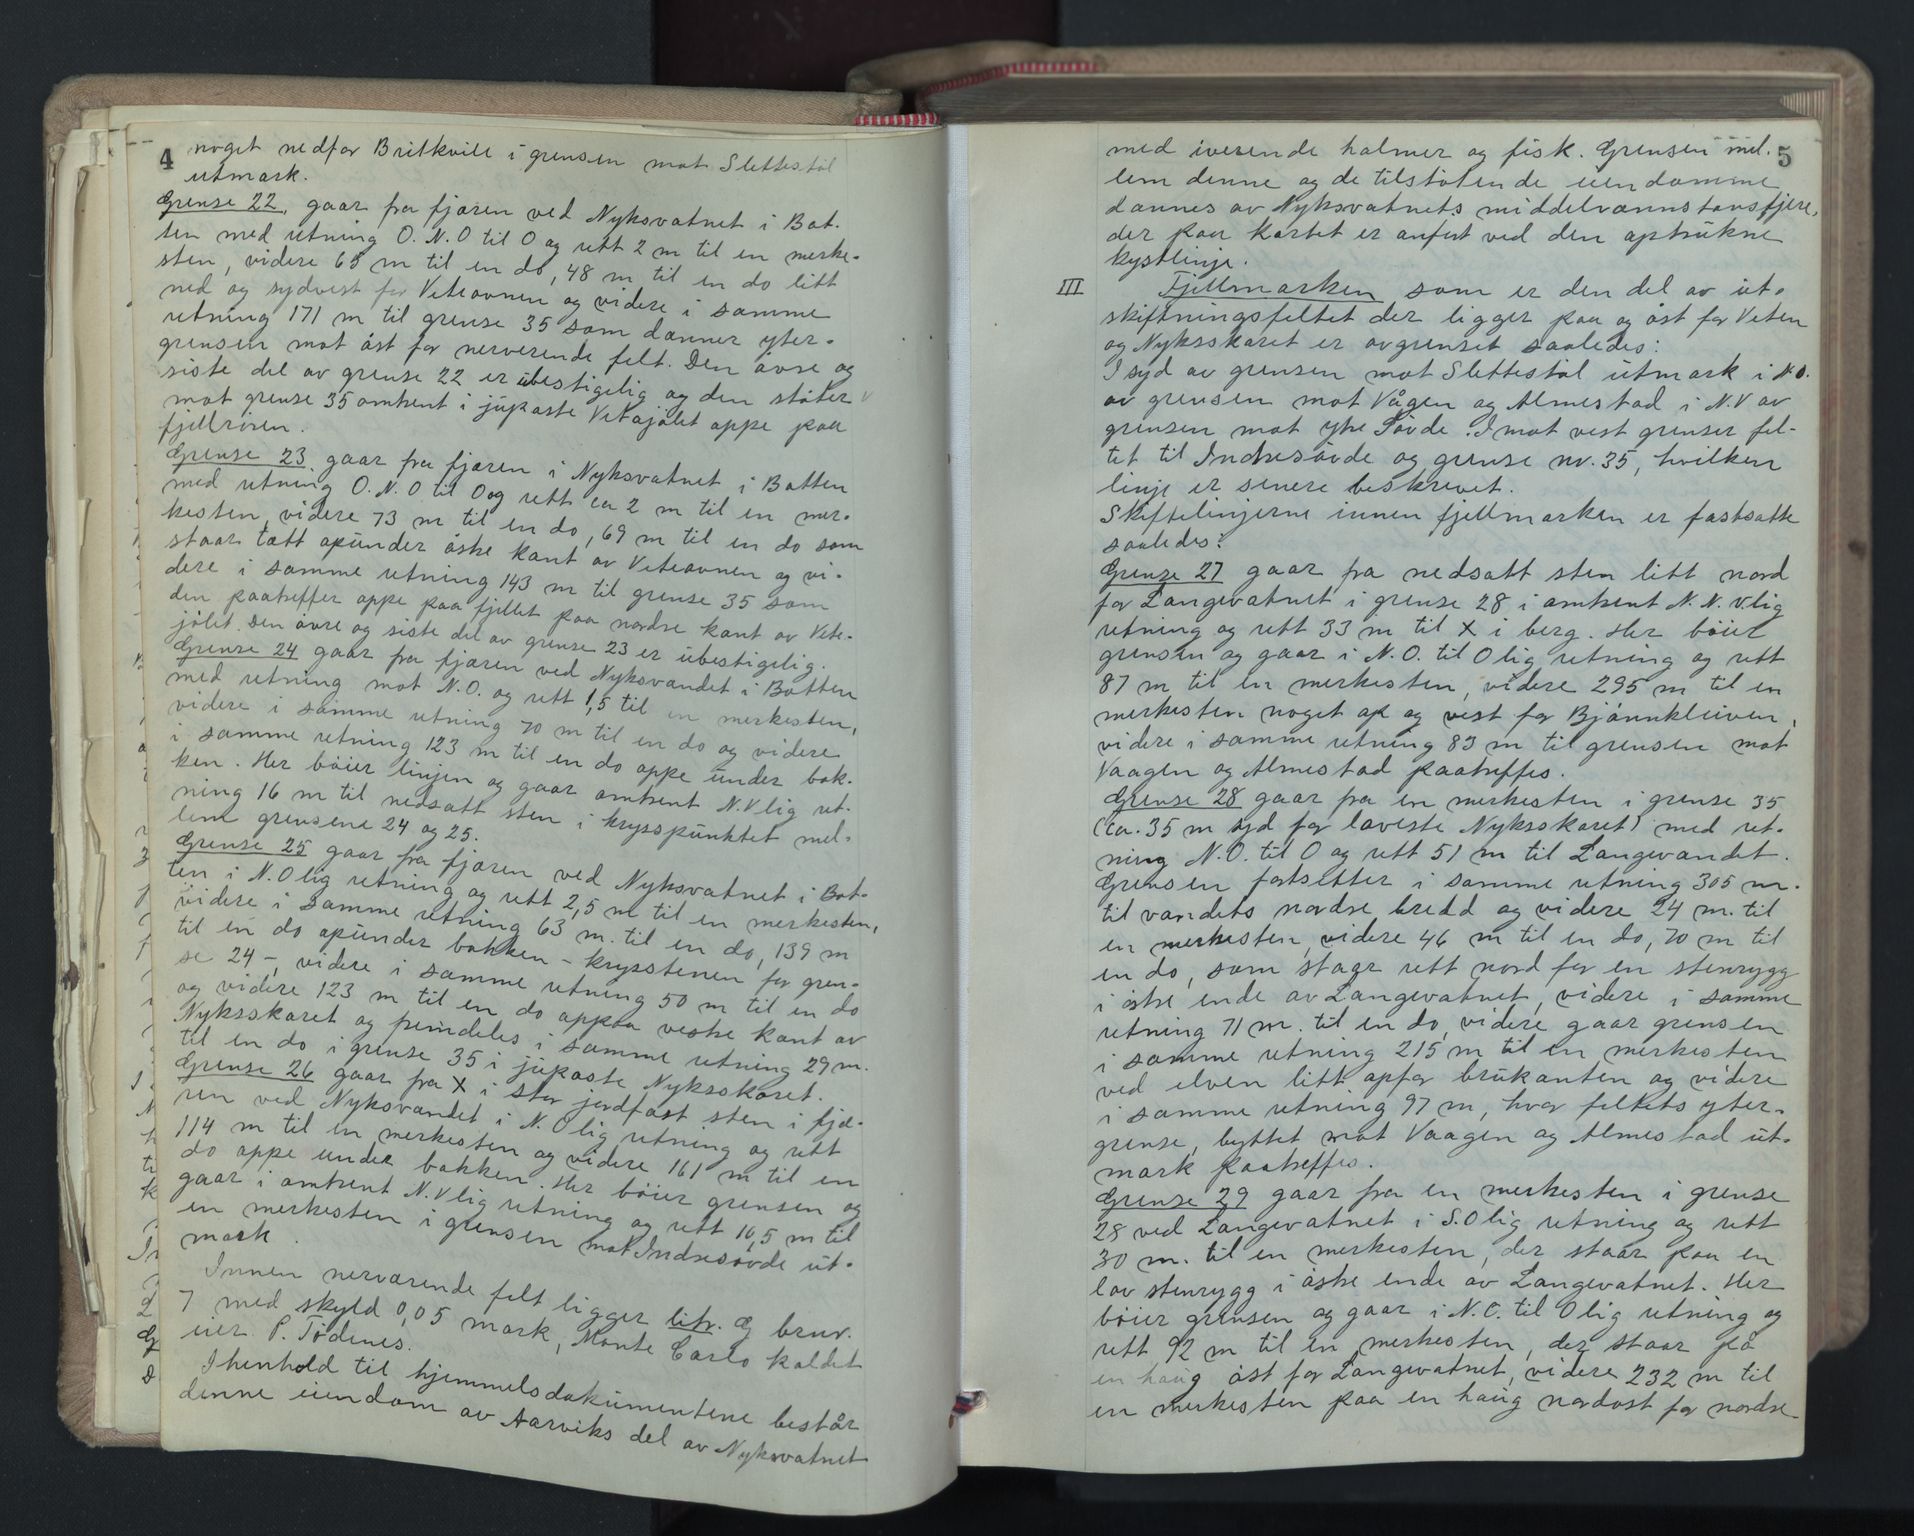 4
noget nedfor Britkvile i grensen mot Slettestøl
utmark.
Grense 22, gaar fra fjæren ved Nyksvatnet i Bot-
ten med retning O.N.O til O og rett 2 m til en merke-
sten, videre 65 m til en do, 48 m til en do litt
ned og sydvest for Veteovnen og videre i samme
retning 171 m til grense 35 som danner yter-
grensen mot øst for nerverende felt. Den øvre og
siste del av grense 22 er ubestigelig og den støter
mot grense 35 omtrent i jupaste Vetajølet oppe paa
fjellrisen.
Grense 23 gaar fra fjæren i Nyksvatnet i Botten
med retning O.N.O til O og rett ca 2 m til en mer-
kesten, videre 73 m til en do, 69 m til en do som
staar tætt opunder østre kant av Veteovnen og vi-
dere i samme retning 143 m til grense 35 som
den paatreffer oppe paa fjellet paa nordre kant av Vete-
jølet. Den øvre og siste del av grense 23 er ubestigelig.
Grense 24 gaar fra fjæren ved Nyksvandet i Botten
med retning mot N.O. og rett 1,5 til en merkesten,
videre i samme retning 70 m til en do og videre
i samme retning 123 m til en do oppe under bak-
ken. Her bøier linjen og gaar omtrent N.V lig ret-
ning 16 m til nedsatt sten i krysspunktet mel-
lem grensene 24 og 25.
Grense 25 gaar fra fjæren ved Nyksvatnet i Bot-
ten i N.O lig retning og rett 2,5 m til en merkesten,
videre i samme retning 63 m. til en do, 139 m
til en do opunder bakken - krysstenen for gren-
se 24 -, videre i samme retning 50 m til en do
og videre 123 m til en do oppaa vestre kant av
Nyksskaret og fremdeles i samme retning 29 m.
til en do i grense 35 i jupaste Nyksskaret.
Grense 26 gaar fra X i stor jordfast sten i fjæ-
ren ved Nyksvandet i N.O lig retning og rett
114 m til en merkesten og videre 161 m til en
do oppe under bakken. Her bøier grensen og
gaar i omtrent N.V lig retning og rett 16,5 m til
en merkesten i grensen mot Indresøvde ut-
mark.
Innen nerværende felt ligger litr. Og bruv.
7 med skyld 0,05 mark, Monte Carlo kaldet
eier P. Tødenes.
I henhold til hjemmelsdokumentene består
denne eiendom av Aarviks del av Nyksvatnet
5
med iverende holmer og fisk. Grensen mel-
lem denne og de tilstøtende eiendomme
dannes av Nyksvatnets middelvannstansfjere,
der paa kartet er anført ved den optrukne
kystlinje.
III Fjellmarken som er den del av ut-
skiftningsfeltet der ligger paa og øst for Veten
og Nyksskaret er avgrenset saaledes:
I syd av grensen mot Slettestøl utmark i N.O.
av grensen mot Vågen og Almestad i N.V av
grensen mot ytre Søvde. I mot vest grenser fel-
tet til Indresøvde og grense nr. 35, hvilken
linje er senere beskrevet.
Skiftelinjerne innen fjellmarken er fastsatte
saaledes:
Grense 27 gaar fra nedsatt sten litt nord
for Langevatnet i grense 28 i omtrent N.N.V.lig
retning og rett 33 m til X i berg. Her bøier
grensen og gaar i N.O. til O lig retning og rett
87 m til en merkesten, videre 295 m til en
merkesten noget op og vest for Bjønnkleiven,
videre i samme retning 83 m til grensen mot
Vaagen og Almestad paatreffes.
Grense 28 gaar fra en merkesten i grense 35
(ca. 35 m syd for laveste Nyksskaret) med ret-
ning N.O. til O og rett 51 m til Langevandet.
Grensen fortsetter i samme retning 305 m.
til vandets nordre bredd og videre 24 m. til
en merkesten, videre 46 m til en do, 70 m til
en do, som staar rett nord for en stenrygg
i østre ende av Langevatnet, videre i samme
retning 71 m. til en do, videre gaar grensen
i samme retning 215 m til en merkesten
ved elven litt opfor brukanten og videre
i samme retning 97 m, hvor feltets yter-
grense, byttet mot Vaagen og Almestad ut-
mark paatreffes.
Grense 29 gaar fra en merkesten i grense
28 ved Langevatnet i S.O lig retning og rett
30 m. til en merkesten, der staar paa en
lav stenrygg i østre ende av Langevatnet. Her
bøier grensen og gaar i N.O. til O lig retning og
rett 92 m til en merkesten, der staar på
en haug øst for Langevatnet, videre 232 m til
en merkesten paa en haug nordøst for nordre